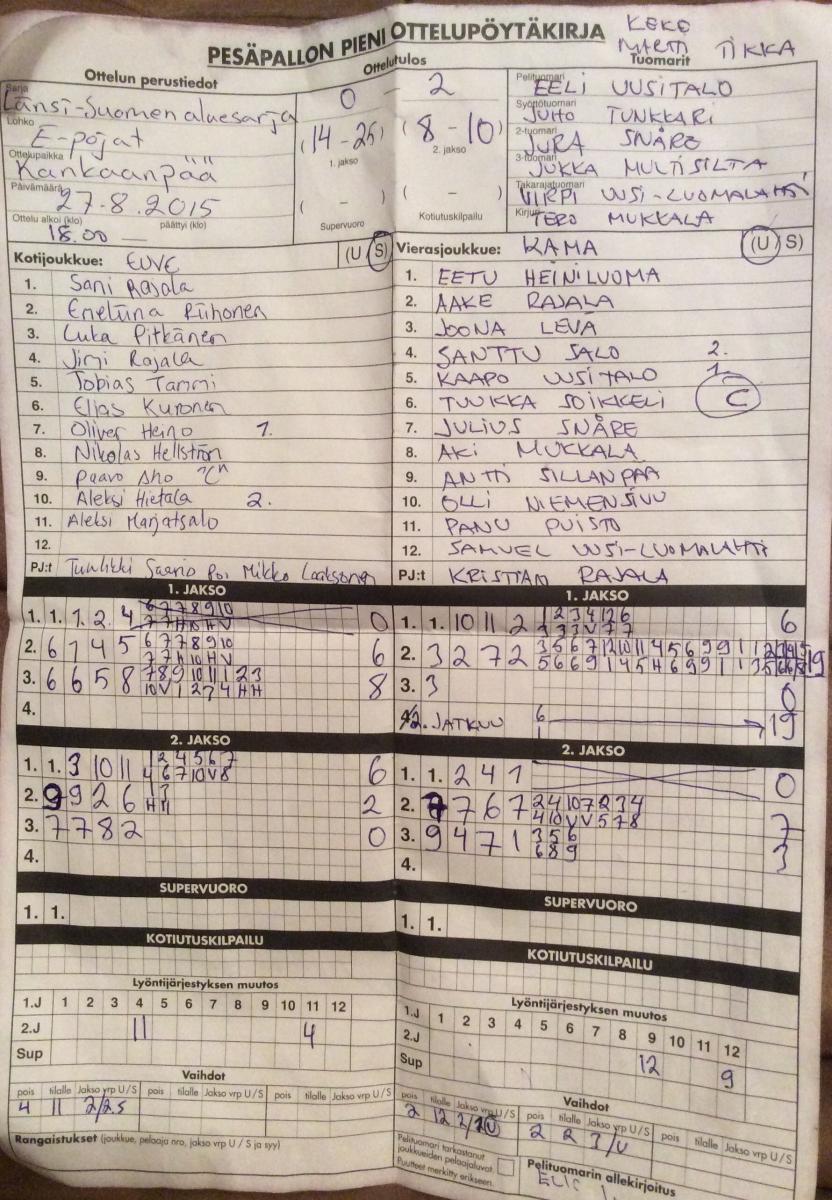 PESÄPALLON PIENI OTTELUPÖYTÄKIRJA
KEKO
MARTTI TIKKA
Ottelun perustiedot
Ottelutulos
Tuomarit
Sarja
Länsi-Suomen aluesarja
Lohko
E-pojat
Ottelupaikka
Kankaanpää
Päivämäärä
27.8.2015
Ottelu alkoi (klo) päättyi (klo)
18.00 —
0 - 2
(14 - 25) (8 - 10)
1. jakso 2. jakso
( - ) ( - )
Supervuoro Kotiutuskilpailu
Pelituomari
EELI UUSITALO
Syöttötuomari
JUHO TUNKKARI
2-tuomari
JURA SNÅRE
3-tuomari
JUKKA MULTISILTA
Takarajatuomari
VIRPI UUSI-LUOMALAHTI
Kirjuri
TERO MUKKALA
Kotijoukkue: EUVE (U S)
1. Sani Rajala
2. Emeliina Riihonen
3. Luka Pitkänen
4. Jimi Rajala
5. Tobias Tammi
6. Elias Kuronen
7. Oliver Heino 1.
8. Nikolas Hellström
9. Paavo Aho "C"
10. Aleksi Hietala 2.
11. Aleksi Marjatsalo
12.
PJ:t Tuulikki Saario Mikko Laaksonen
Vierasjoukkue: KAMA (U S)
1. EETU HEINILUOMA
2. AAKE RAJALA
3. JOONA LEVÄ
4. SANTTU SALO 2.
5. KAAPO UUSITALO 1.
6. TUUKKA SOIKKELI C
7. JULIUS SNÅRE
8. AKI MUKKALA
9. ANTTI SILLANPÄÄ
10. OLLI NIEMENSIVU
11. PANU PUISTO
12. SAMUEL UUSI-LUOMALAHTI
PJ:t KRISTIAN RAJALA
1. JAKSO
1. 1. 1. 2. 4 6 7 7 8 9 10 0
7 7 H 10 H V
2. 6 1 4 5 6 7 7 8 9 10 6
7 7 H 10 H V
3. 6 6 5 8 7 8 9 10 11 1 2 3 8
10 V 1 2 7 4 H H
4.
1. JAKSO
1. 1. 10 11 2 1 2 3 4 12 6 6
3 3 3 V 7 7
2. 3 2 7 2 3 5 6 7 12 10 11 4 5 6 9 9 1 1 2 3 4 5 19
5 6 6 9 1 4 5 H 6 9 9 1 1 3 5 6 6 8
3. 3 0
4/2. JATKUU 6 19
1
2. JAKSO
1. 1. 3 10 11 1 2 4 5 6 7 6
4 6 7 10 V 8
2. 9 9 2 6 1 3 2
H H
3. 7 7 8 2 0
4.
2. JAKSO
1. 1. 2 4 1 0
2. 7 7 6 7 2 4 10 7 2 3 4 7
4 10 V V 5 7 8
3. 9 4 7 1 3 5 6 3
6 8 9
4.
SUPERVUORO
1. 1.
SUPERVUORO
1. 1.
KOTIUTUSKILPAILU
KOTIUTUSKILPAILU
Lyöntijärjestyksen muutos
1.J 1 2 3 4 5 6 7 8 9 10 11 12
2.J 11 4
Sup
Lyöntijärjestyksen muutos
1.J 1 2 3 4 5 6 7 8 9 10 11 12
2.J 12 9
Sup
Vaihdot
pois tilalle Jakso vrp U/S pois tilalle Jakso vrp U/S pois tilalle Jakso vrp U/S
4 11 2/2S
Vaihdot
pois tilalle Jakso vrp U/S pois tilalle Jakso vrp U/S pois tilalle Jakso vrp U/S
2 12 2 2 3/U
Rangaistukset (joukkue, pelaaja nro, jakso vrp U / S ja syy)
Pelituomari tarkastanut
joukkueiden pelaajaluvat.
Puutteet merkitty erikseen.
Pelituomarin allekirjoitus